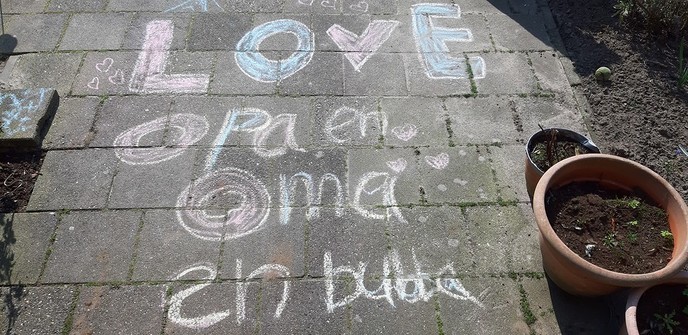 LOVE
opa en
oma
en bubba